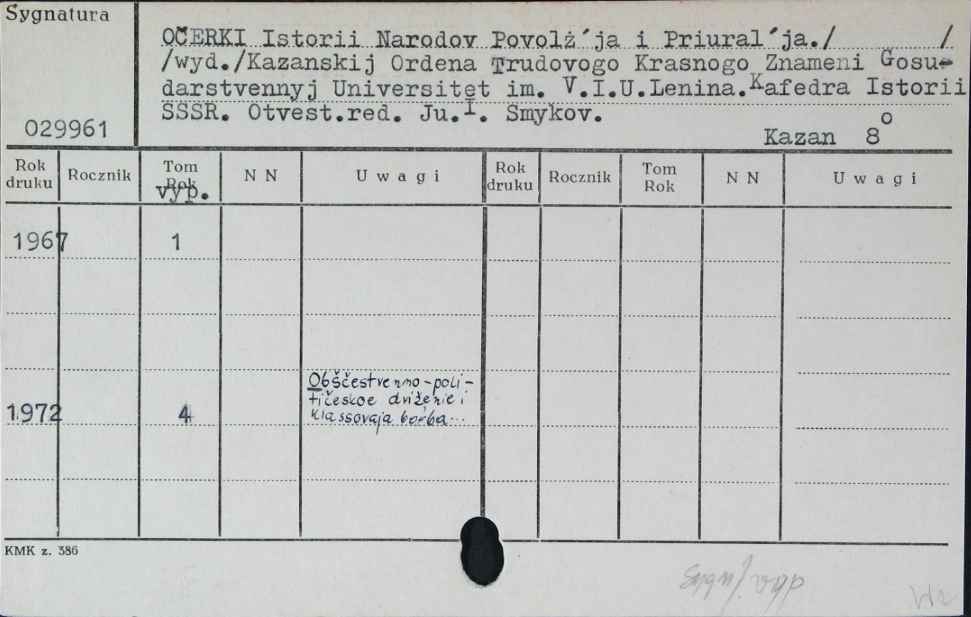 Sygnatura
OČERKI Istorii Narodov Povolž´ja i Priural´ja./ /
/wyd./Kazanskij Ordena Trudovogo Krasnogo Znameni Gosu-
darstvennyj Universitet im. V.I.U.Lenina.Kafedra Istorii
SSSR. Otvest.red. Ju.I. Smykov.
029961
Kazan 8o
Rok druku Rocznik Tom Rok vyp. NN Uwagi Rok druku Rocznik Tom Rok NN Uwagi
1967 1
Obščestvenno-poli-
tičeskoe dviženie i
1972 4 klassovaja bor'ba...
KMK z. 386